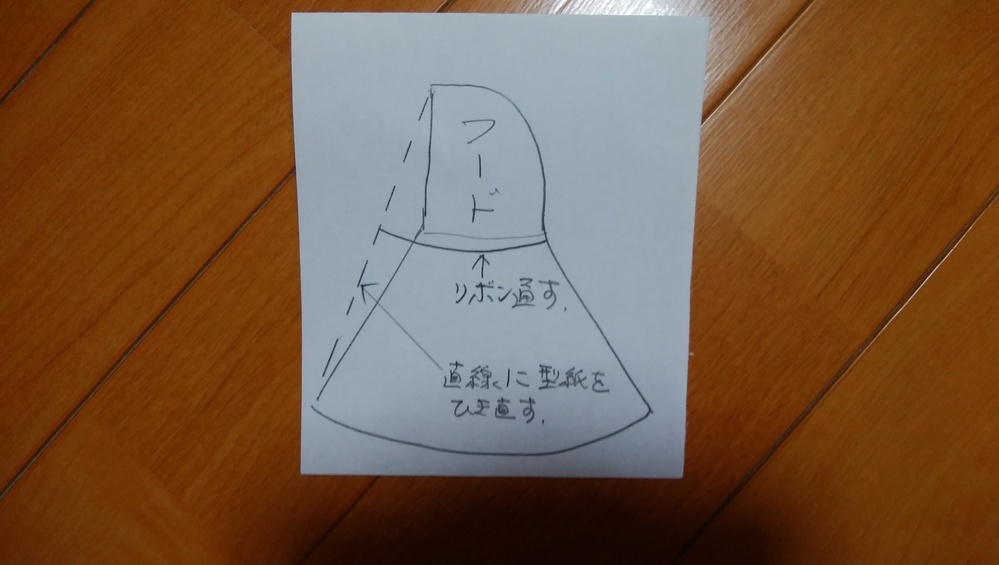 フード
リボン通す.
直線に型紙を
ひき直す.